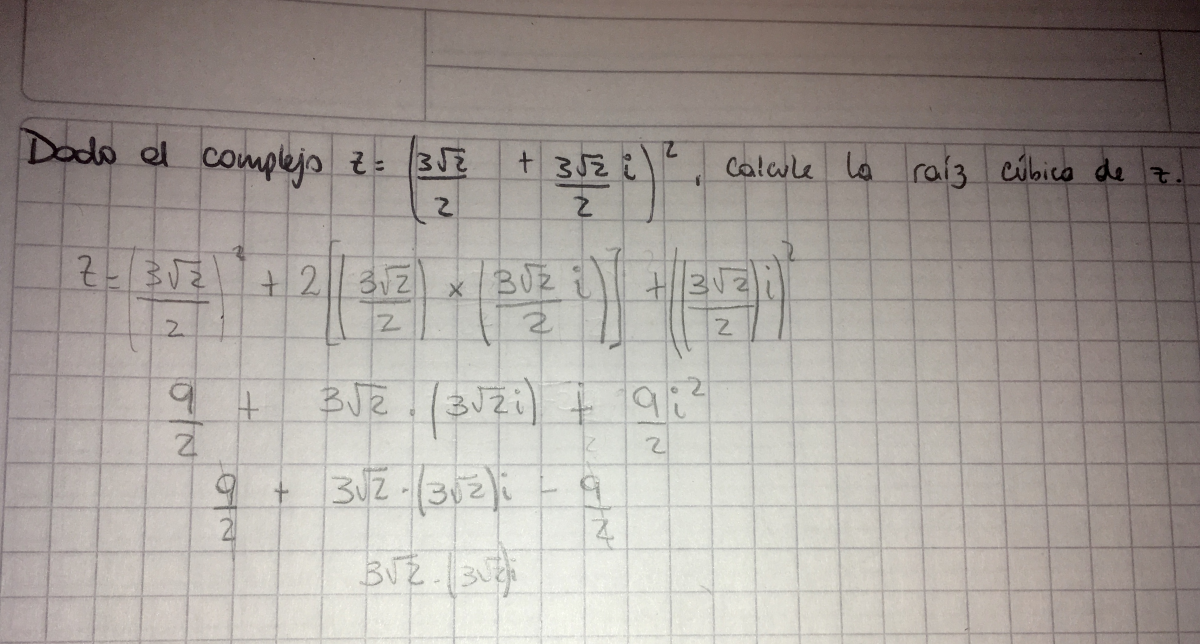 Dado el complejo z = (3√2/2 + 3√2/2 i)², calcule la raíz cúbica de z.
z = (3√2/2)² + 2[(3√2/2) × (3√2/2 i)] + ((3√2/2)i)²
9/2 + 3√2 · (3√2i) + 9/2 i²
9/2 + 3√2 · (3√2)i - 9/2
3√2 · (3√2)i